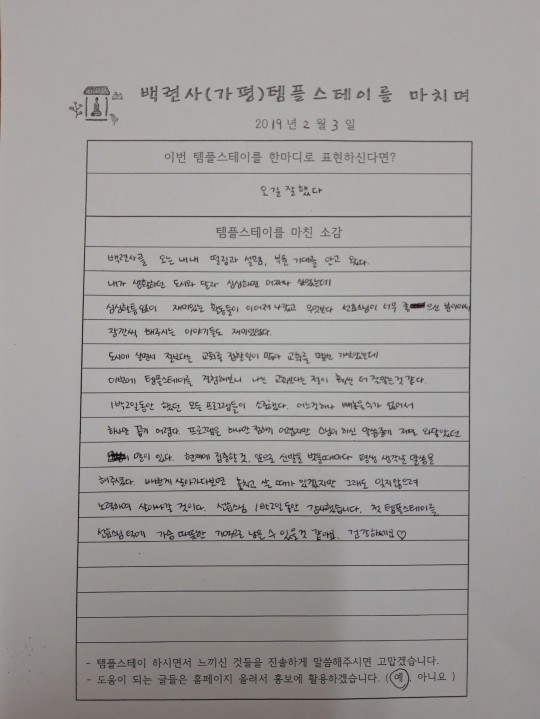 백련사(가평)템플스테이를 마치며
2019년 2월 3일
이번 템플스테이를 한마디로 표현하신다면?
오길 잘했다
템플스테이를 마친 소감
백련사를 오는 내내 떨림과 설렘, 부푼 기대를 안고 왔다.
내가 생활하던 도시와 달라 심심하면 어쩌나 싶었는데
심심할틈 없이 재미있는 활동들이 이어져 나갔고 무엇보다 선효스님이 너무 좋으신 분이여서
잠깐씩 해주시는 이야기들도 재미있었다.
도시에 살면서 절보다는 교회를 접할일이 많아 교회를 몇번 가보았는데
이번에 템플스테이를 경험해보니 나는 교회보다는 절이 훨씬 더 잘맞는것 같다.
1박2일동안 했던 모든 프로그램들이 소중했다. 어느것하나 빼놓을수가 없어서
하나만 꼽기 어렵다. 프로그램은 하나만 정하기 어렵지만 스님이 하신 말씀중에 제일 와닿았던
말이 있다. 현재에 집중할 것, 앞으로 신발을 벗을때마다 평생 생각날 말씀을
해주셨다. 바쁘게 살아가다보면 놓치고 살 때가 있겠지만 그래도 잊지않으려
노력하며 살아나갈 것이다. 선효스님 1박2일동안 감사했습니다. 첫 템플스테이를
선효스님 덕에 가슴 따뜻한 기억으로 남을 수 있을것 같아요. 건강하세요♡
- 템플스테이 하시면서 느끼신 것들을 진솔하게 말씀해주시면 고맙겠습니다.
- 도움이 되는 글들은 홈페이지 올려서 홍보에 활용하겠습니다. (예, 아니요)